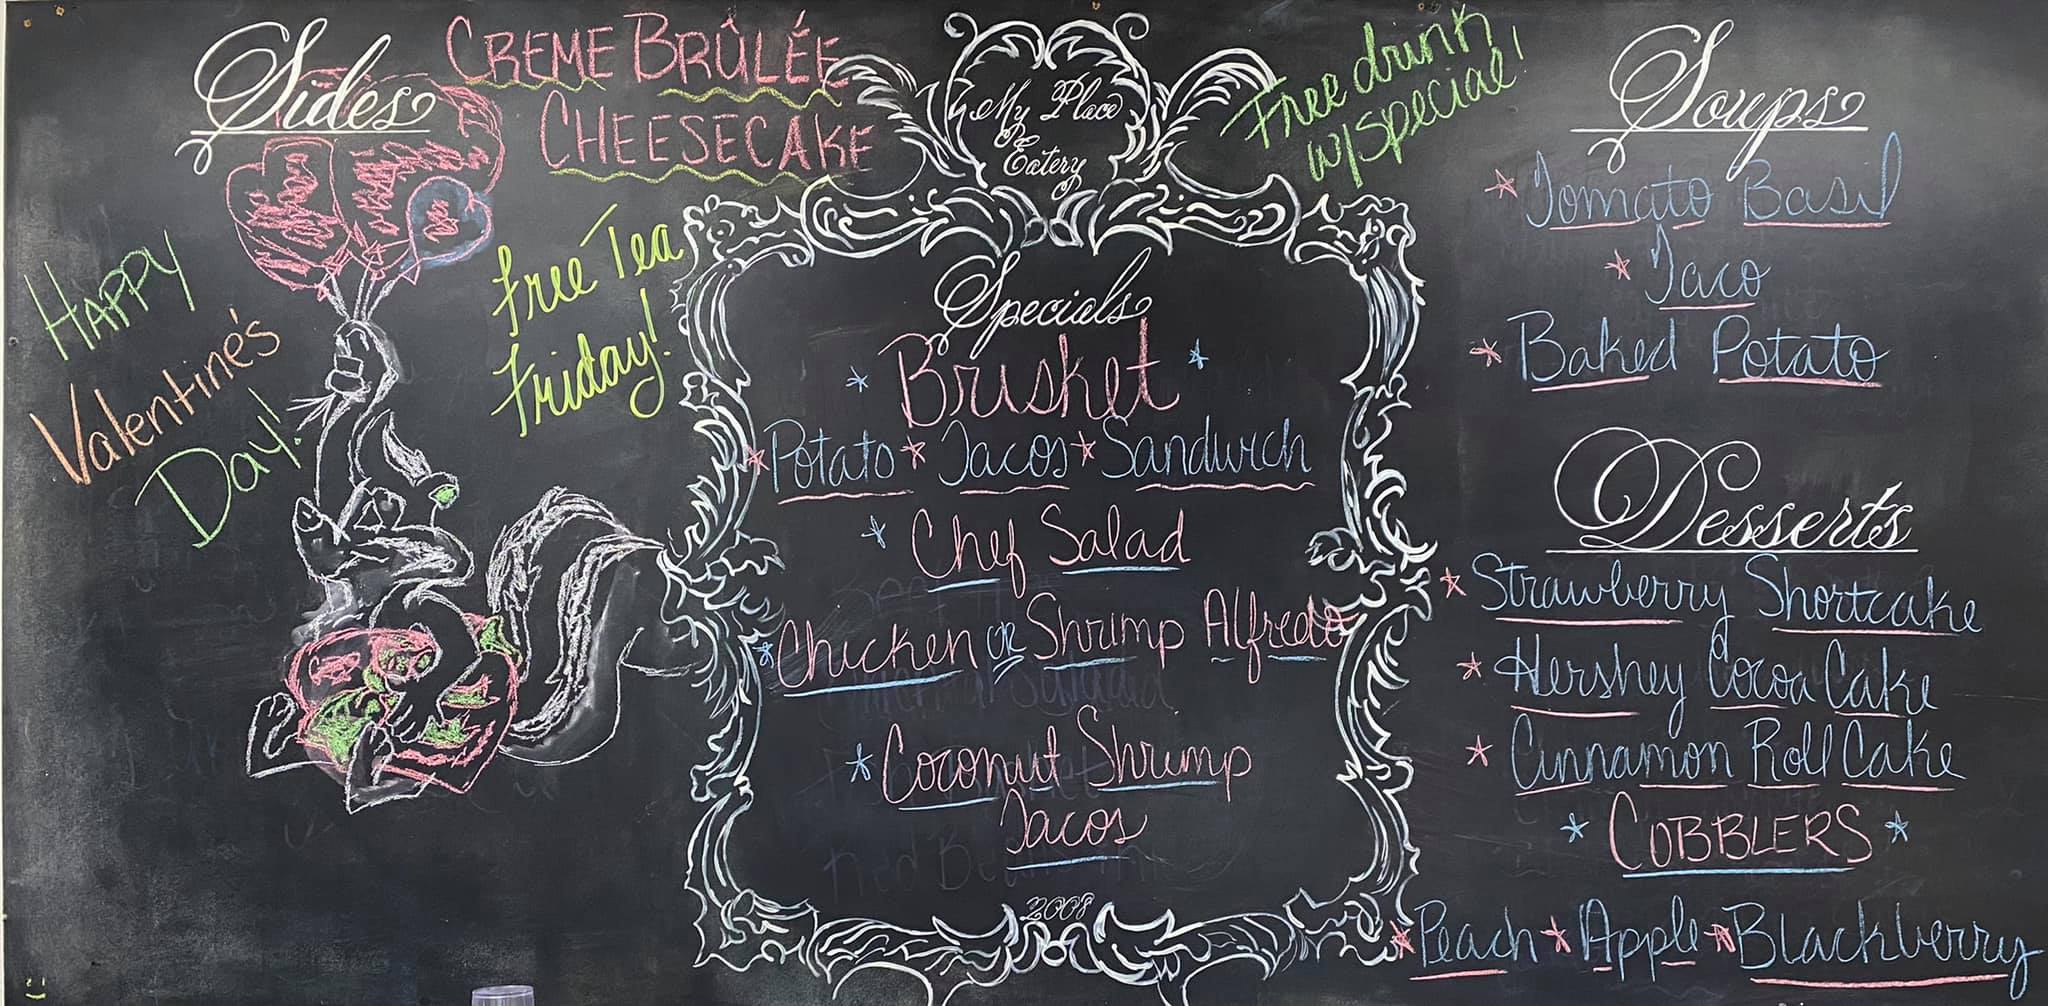 Sides
CREME BRÛLÉE
CHEESECAKE
HAPPY
Valentine's
Day!
Free Tea
Friday!
My Place
Eatery
Free drink
w/special!
Specials
Brisket
Potato * Tacos * Sandwich
Chef Salad
Chicken or Shrimp Alfredo
Coconut Shrimp
Tacos
2008
Soups
Tomato Basil
Taco
Baked Potato
Desserts
Strawberry Shortcake
Hershey Cocoa Cake
Cinnamon Roll Cake
COBBLERS
Peach * Apple * Blackberry